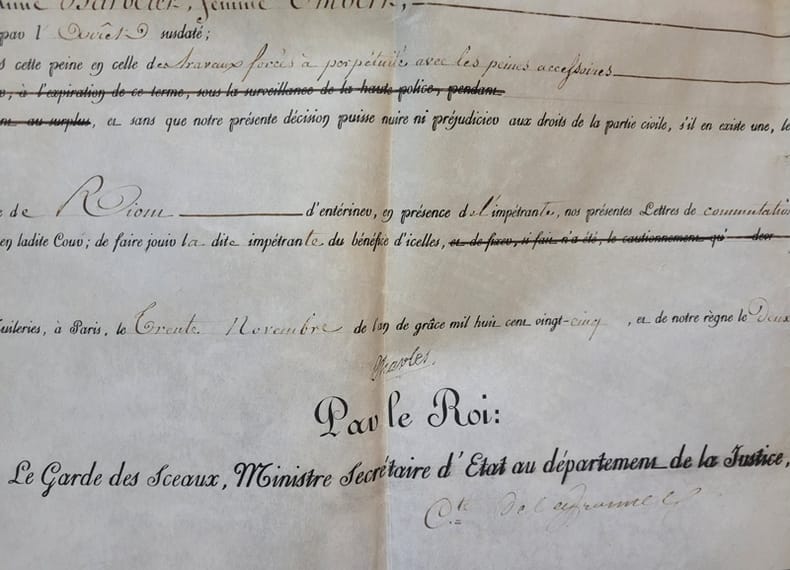 Barbelet, femme Imbert,
par l'Arrêt susdaté;
s cette peine en celle des travaux forcés à perpétuité avec les peines accessoires
, à l'expiration de ce terme, sous la surveillance de la haute police, pendant
nt au surplus, et sans que notre présente décision puisse nuire ni préjudicier aux droits de la partie civile, s'il en existe une, le
e de Riom d'entériner, en présence de l'impétrante, nos présentes Lettres de commutation
en ladite Cour; de faire jouir la dite impétrante du bénéfice d'icelles, et de fixer, si fait n'a été, le cautionnement qu' deor
uileries, à Paris, le Trente Novembre de l'an de grâce mil huit cent vingt-cinq, et de notre règne le Deux
Charles
Par le Roi:
Le Garde des Sceaux, Ministre Secrétaire d'Etat au département de la Justice,
Cte de Peyronnet